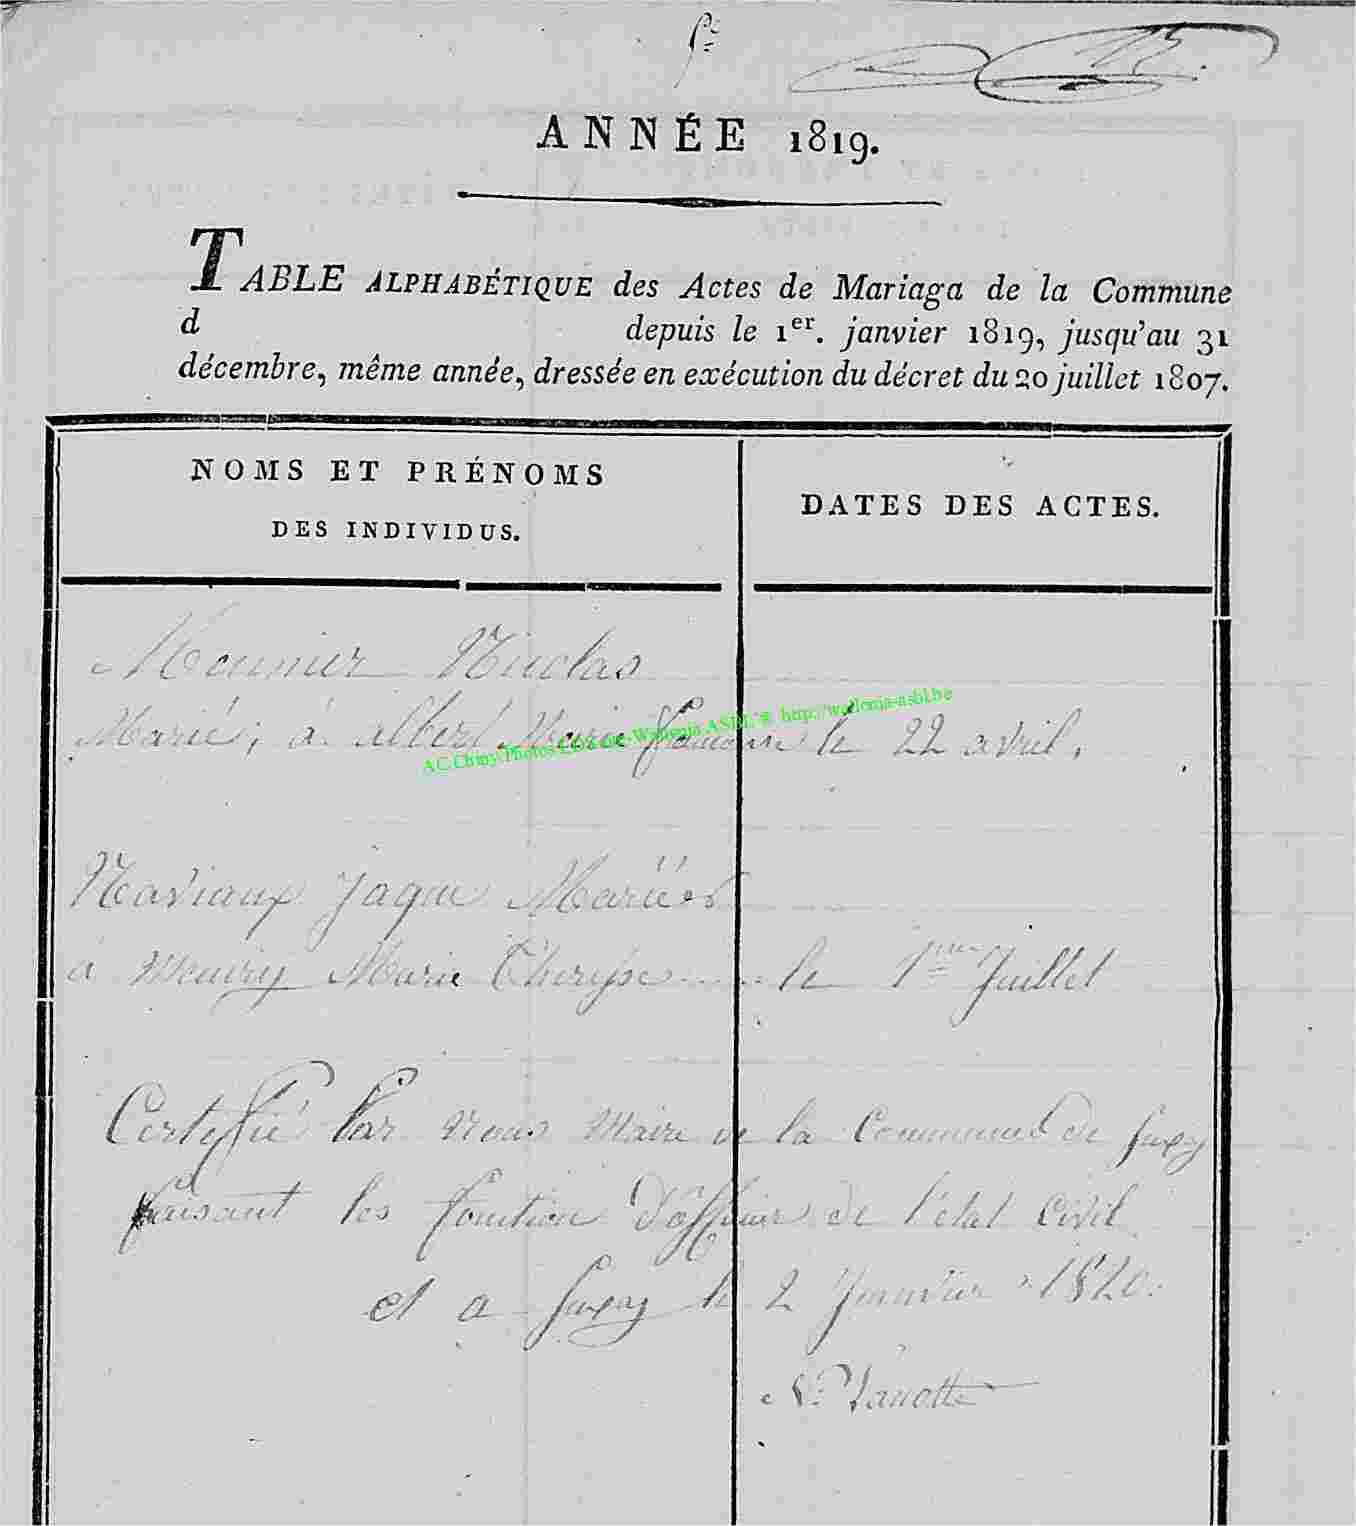 ANNÉE 1819.
TABLE ALPHABÉTIQUE des Actes de Mariaga de la Commune
d depuis le 1er. janvier 1819, jusqu'au 31
décembre, même année, dressée en exécution du décret du 20 juillet 1807.
NOMS ET PRÉNOMS
DES INDIVIDUS.
DATES DES ACTES.
Meunier Nicolas
Marié, a albert Marie le 22 avril.
AC Chiny Photos http://wallonia-asbl.be
Naviaux Jaque Mariées
a Marie Therese le 1 Juillet
Certifié Par nous Maire de la Commune de
faisant les fonction de l'état Civil
et a le 2 Janvier 1820.